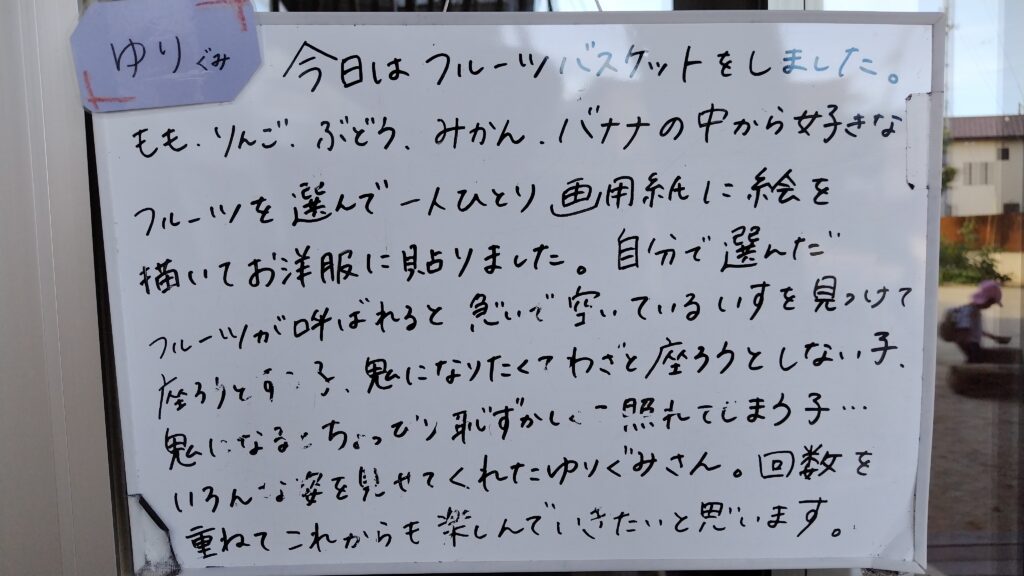 ゆりぐみ
今日はフルーツバスケットをしました。
もも、りんご、ぶどう、みかん、バナナの中から好きな
フルーツを選んで一人ひとり画用紙に絵を
描いてお洋服に貼りました。自分で選んだ
フルーツが呼ばれると急いで空いているいすを見つけて
座ろうとする子、鬼になりたくてわざと座ろうとしない子、
鬼になるとちょっぴり恥ずかしくて照れてしまう子…
いろんな姿を見せてくれたゆりぐみさん。回数を
重ねてこれからも楽しんでいきたいと思います。